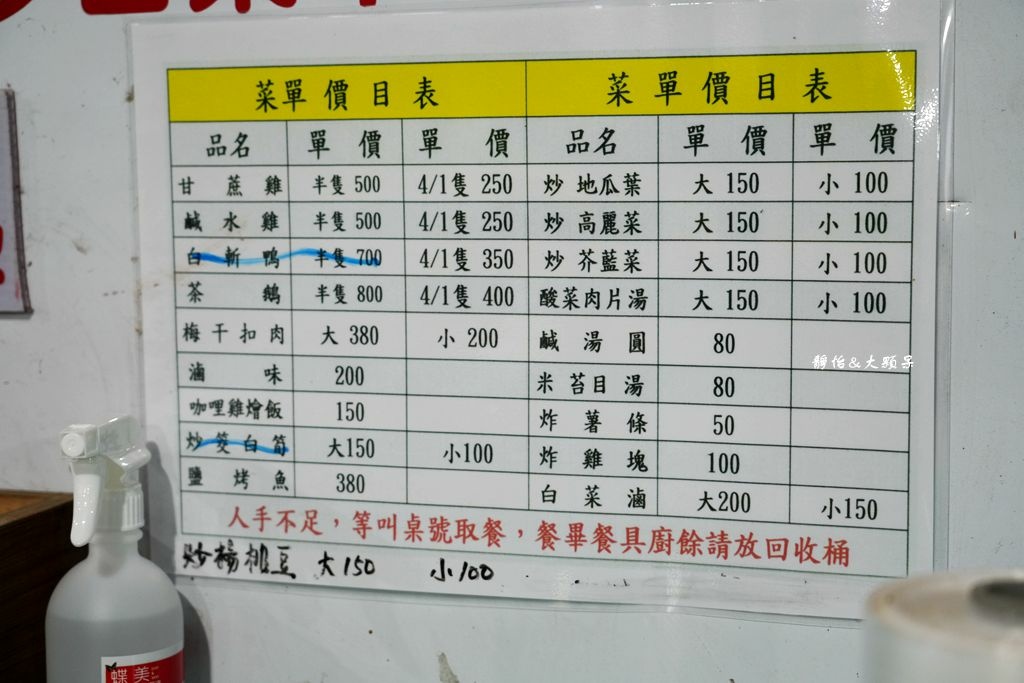 菜單價目表 菜單價目表
品名 單價 單價 品名 單價 單價
甘蔗雞 半隻500 4/1隻250 炒地瓜葉 大150 小100
鹹水雞 半隻500 4/1隻250 炒高麗菜 大150 小100
白斬鴨 半隻700 4/1隻350 炒芥藍菜 大150 小100
茶鵝 半隻800 4/1隻400 酸菜肉片湯 大150 小100
梅干扣肉 大380 小200 鹹湯圓 80
滷味 200 米苔目湯 80
咖哩雞燴飯 150 炸薯條 50
炒筊白筍 大150 小100 炸雞塊 100
鹽烤魚 380 白菜滷 大200 小150
人手不足，等叫桌號取餐，餐畢餐具廚餘請放回收桶
炒楊桃豆 大150 小100
靜怡&大顆呆
蝶美